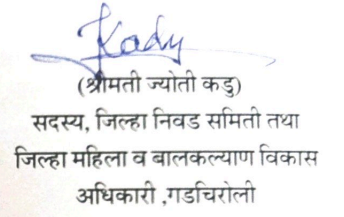 Kady
(श्रीमती ज्योती कडु)
सदस्य, जिल्हा निवड समिती तथा
जिल्हा महिला व बालकल्याण विकास
अधिकारी ,गडचिरोली